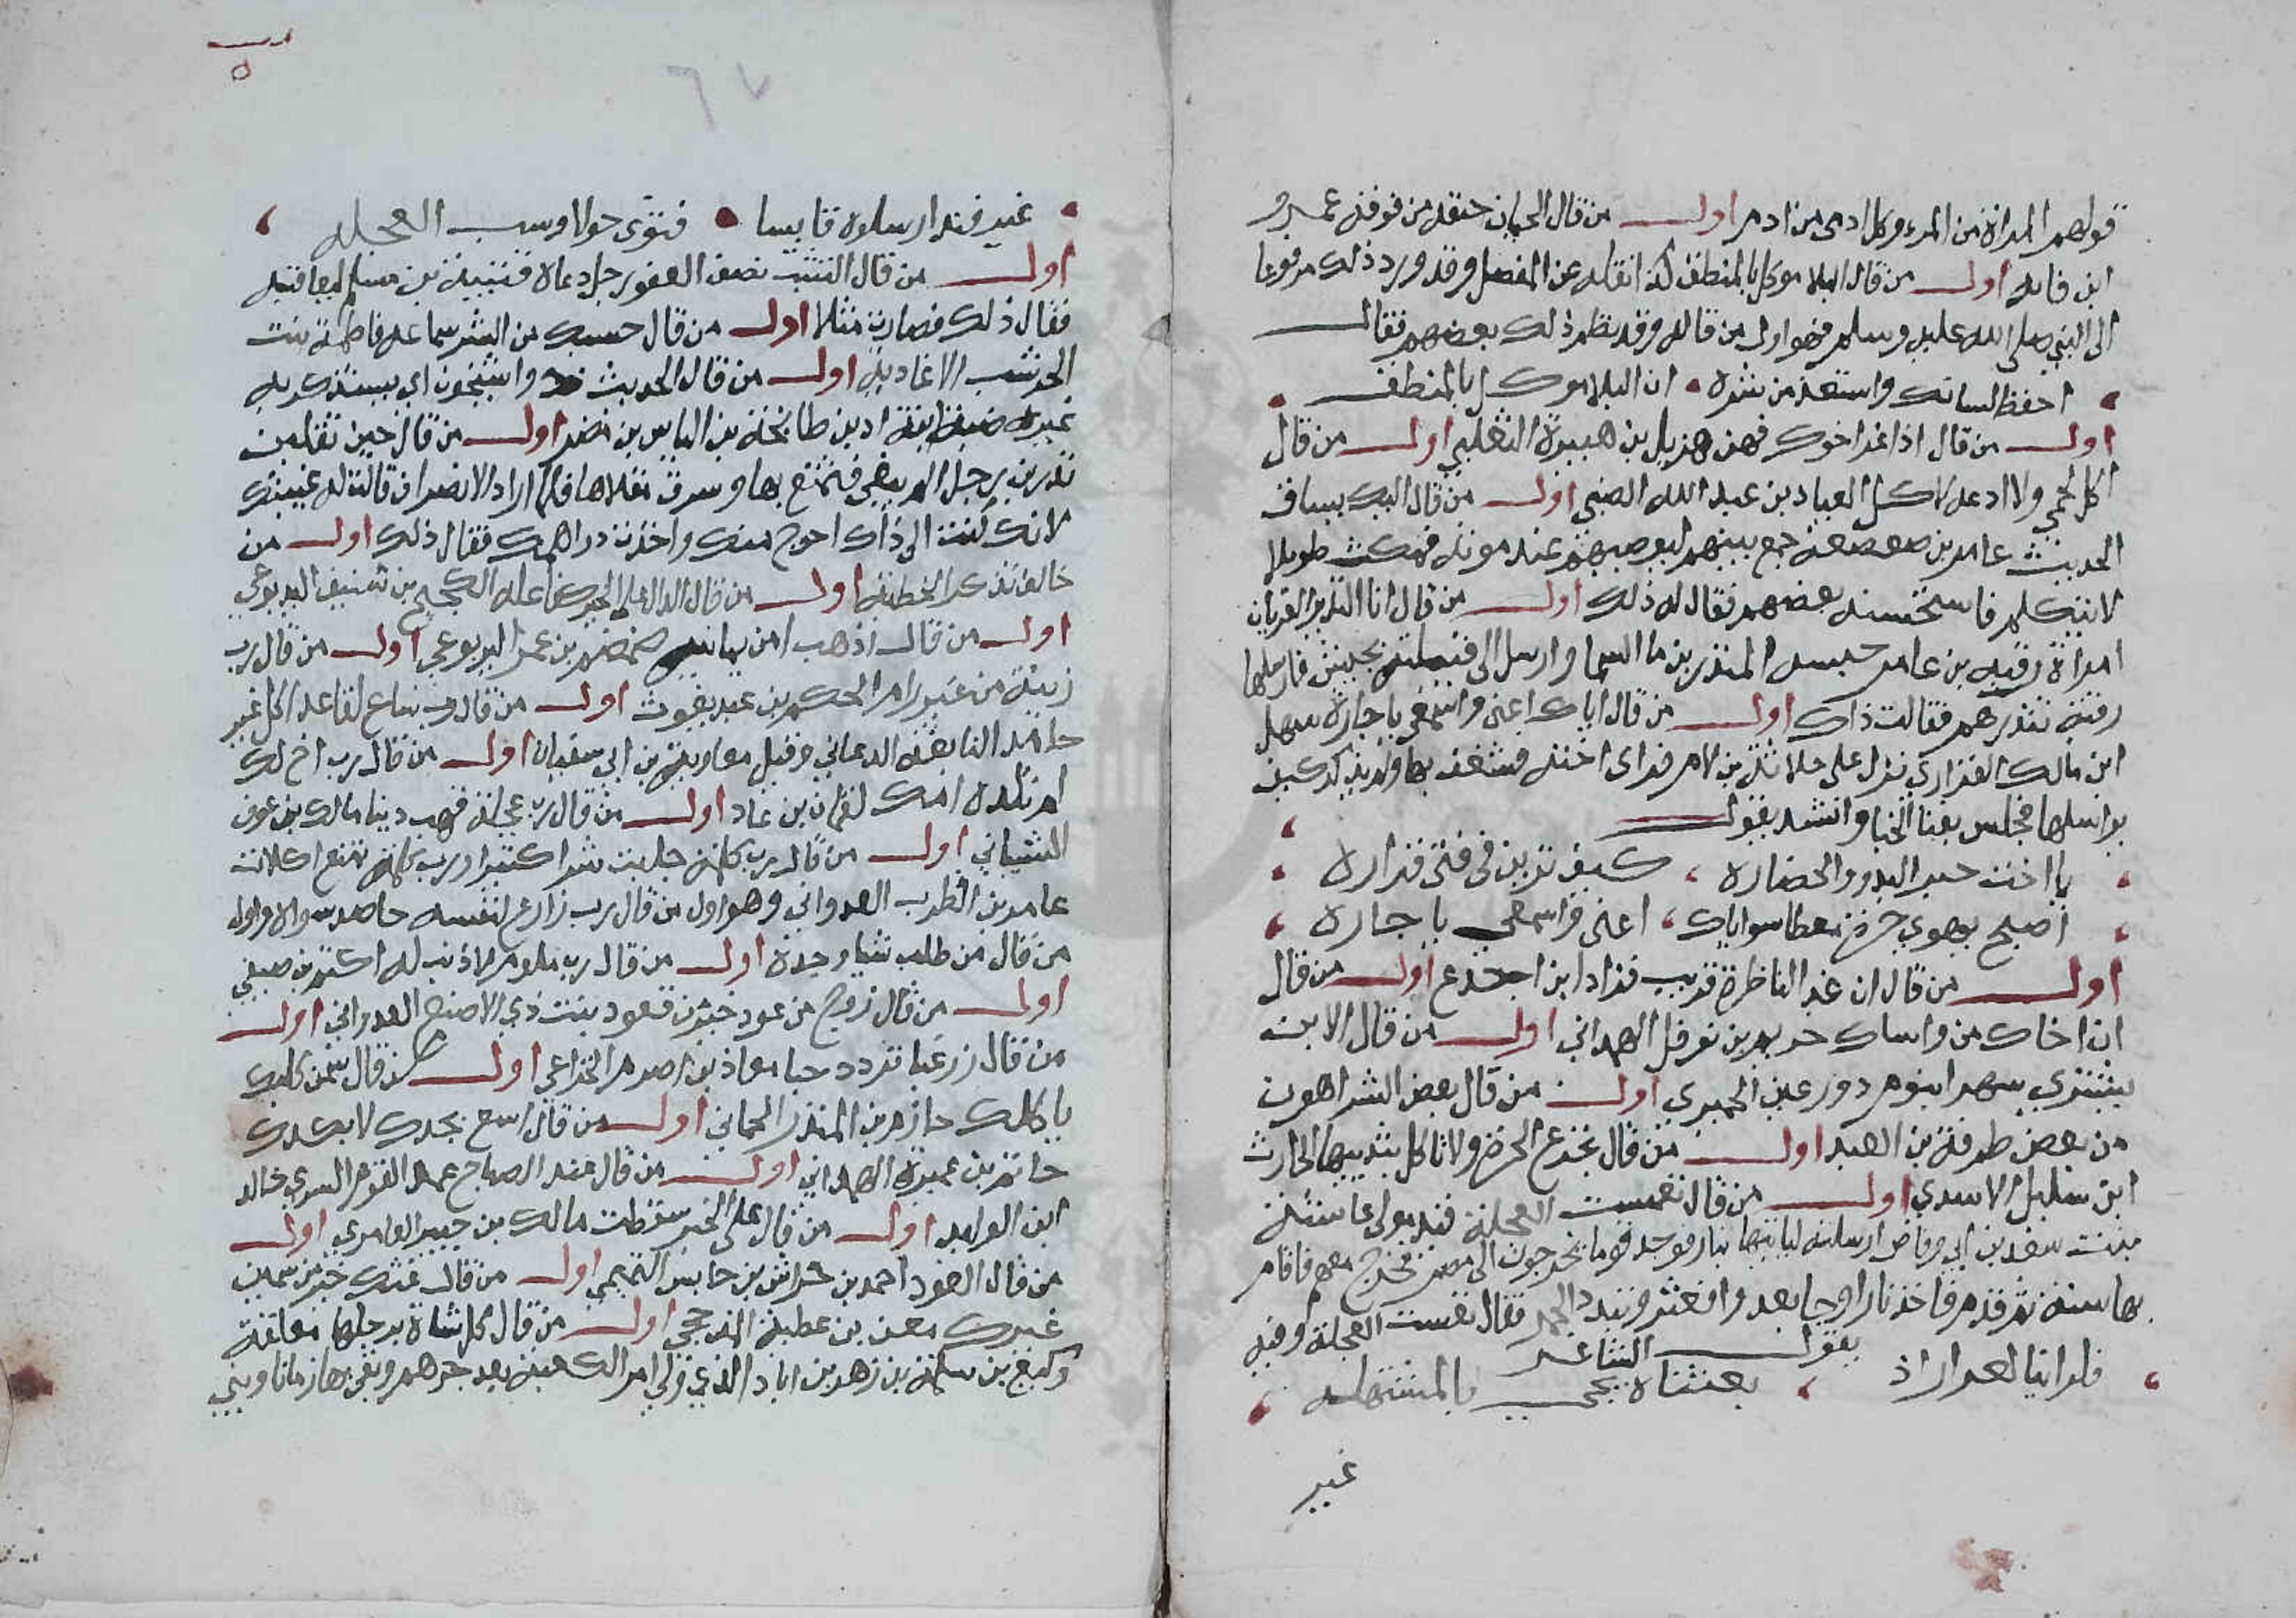 قولهم المراة من المرء وكل ادمي من ادم اول من قال الجبان حتفه من فوقه عمرو
ابن مامه اول من قال البلا موكل بالمنطق كذا نقله عن المفضل وقد ورد ذلك مرفوعا
الى النبي صلى الله عليه وسلم فهو اول من قاله وقد نظم ذلك بعضهم فقال
احفظ لسانك واستعذ من شره • ان البلا موكل بالمنطق
اول من قال اذا عز اخوك فهن هزيل بن هبيرة الثعلبي اول من قال
اكل لحمي ولا ادعه لاكل العيار بن عبد الله الضبي اول من قال اليك يساق
الحديث عامر بن صعصعة جمع بنيهم ليوصيهم عند موته فمكث طويلا
لا يتكلم فاستحثه بعضهم فقال له ذلك اول من قال انا النذير العريان
امراة رقبه بن عامر حبسه المنذر بن ما السما وارسل الى قبيلته بجيش فارسلها
رقبة تنذرهم فقالت ذاك اول من قال اياك اعني واسمعي يا جاره سهل
ابن مالك الفزاري نزل على حلاثة بن لام فراى اخته فشغف بها ولم يدر كيف
يراسلها فجلس بفنا الخبا وانشد يقول
يا اخت خير البدو والحضاره ، كيف ترين في فتى فزاره
اصبح يهوى حرة معطاره اياك ، اعني واسمعي يا جاره
اول من قال ان غدا لناظره قريب قراد ابن اجدع اول من قال
ان اخاك من واساك حريم بن نوفل الهمداني اول من قال الا من
يشتري سهرا بنوم ذو رعين الحميري اول من قال بعض الشر اهون
من بعض طرفة بن العبد اول من قال تجوع الحرة ولا تاكل بثدييها الحارث
ابن سليل الاسدي اول من قال تعست العجلة فند مولى عائشة
بنت سعد بن ابي وقاص ارسلته لياتيها بنار فوجد قوما يخرجون الى مصر فخرج معهم فاقام
بها سنة ثم قدم فاخذ نارا وجا يعدو فعثر وتبدد الجمر فقال تعست العجلة وفيه
يقول الشاعر
ما راينا لعرار اذ ، بعثناه يجي بالمشمله
غير
غير فند ارسلوه قابسا • فثوى حولا وسب العجله
اول من قال التثبت نصف العفو رجل دعاه قتيبة بن مسلم ليعاقبه
فقال ذلك فصارت مثلا اول من قال حسبك من الشر سماعه فاطمة بنت
الخرشب الانماريه اول من قال الحديث ذو شجون اي يستذكر به
غيره ضبة بن اد بن طابخة بن الياس بن مضر اول من قال حين تقلين
تدرين رجل بغي فتمتع بها وسرق مقلاها فلما اراد الانصراف قالت له غبنتك
لانك كنت الى ذاك احوج منك واخذت دراهمك فقال ذلك اول من
خالف تذكر الحطيئة اول من قال الدال على الخير كفاعله اللجيج بن شنيف اليربوعي
اول من قال اذهب امن يمانيه ضمضم بن عمرو اليربوعي اول من قال رب
رمية من غير رام الحكم بن عبد يغوث اول من قال رب ساع لقاعد اكل غير
حامد النابغة الذبياني وقيل معاوية بن ابي سفيان اول من قال رب اخ لك
لم تلده امك لقمان بن عاد اول من قال رب عجلة تهب ريثا مالك بن عوف
الشيباني اول من قال رب كلمة جلبت شرا كثيرا ورب كلمة تمنع اكلات
عامر بن الظرب العدواني وهو اول من قال رب زارع لنفسه حاصد سواه واول
من قال من طلب شيا وجده اول من قال رب ملوم لا ذنب له اكثم بن صيفي
اول من قال زوج من عود خير من قعود بنت ذي الاصبع العدواني اول
من قال زر غبا تزدد حبا معاذ بن صرم الخزاعي اول من قال سمن كلبك
ياكلك حازم بن المنذر الحماني اول من قال اسع بجدك لا بكدك
حاتم بن عميرة الهمداني اول من قال عند الصباح يحمد القوم السرى خالد
ابن الوليد اول من قال على الخبير سقطت مالك بن جبير العامري اول
من قال العود احمد بن خراش بن حابس التميمي اول من قال غثك خير من سمين
غيرك معن بن عطية المذحجي اول من قال كل شاة برجلها معلقة
وكيع بن سلمة بن زهير بن اياد الذي ولي امر الكعبة بعد جرهم وبقي بها زمانا وبنى